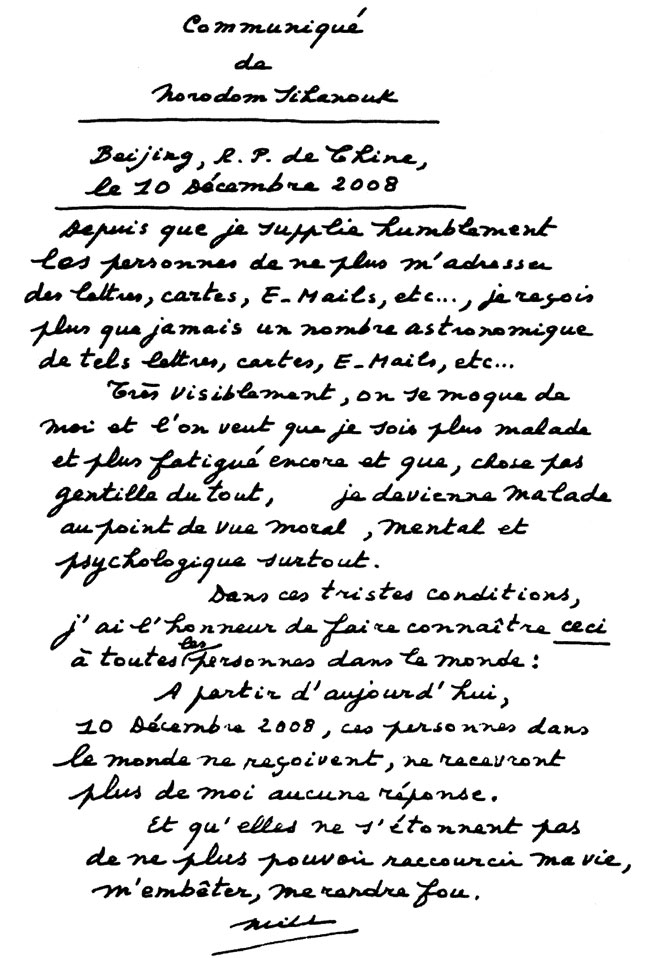 Communiqué
de
Norodom Sihanouk
Beijing, R. P. de Chine,
le 10 Décembre 2008
Depuis que je supplie humblement
les personnes de ne plus m'adresser
des lettres, cartes, E-Mails, etc..., je reçois
plus que jamais un nombre astronomique
de tels lettres, cartes, E-Mails, etc...
Très visiblement, on se moque de
moi et l'on veut que je sois plus malade
et plus fatigué encore et que, chose pas
gentille du tout, je devienne malade
au point de vue moral, mental et
psychologique surtout.
Dans ces tristes conditions,
j'ai l'honneur de faire connaître ceci
à toutes les personnes dans le monde :
A partir d'aujourd'hui,
10 Décembre 2008, ces personnes dans
le monde ne reçoivent, ne recevront
plus de moi aucune réponse.
Et qu'elles ne s'étonnent pas
de ne plus pouvoir raccourcir ma vie,
m'embêter, me rendre fou.